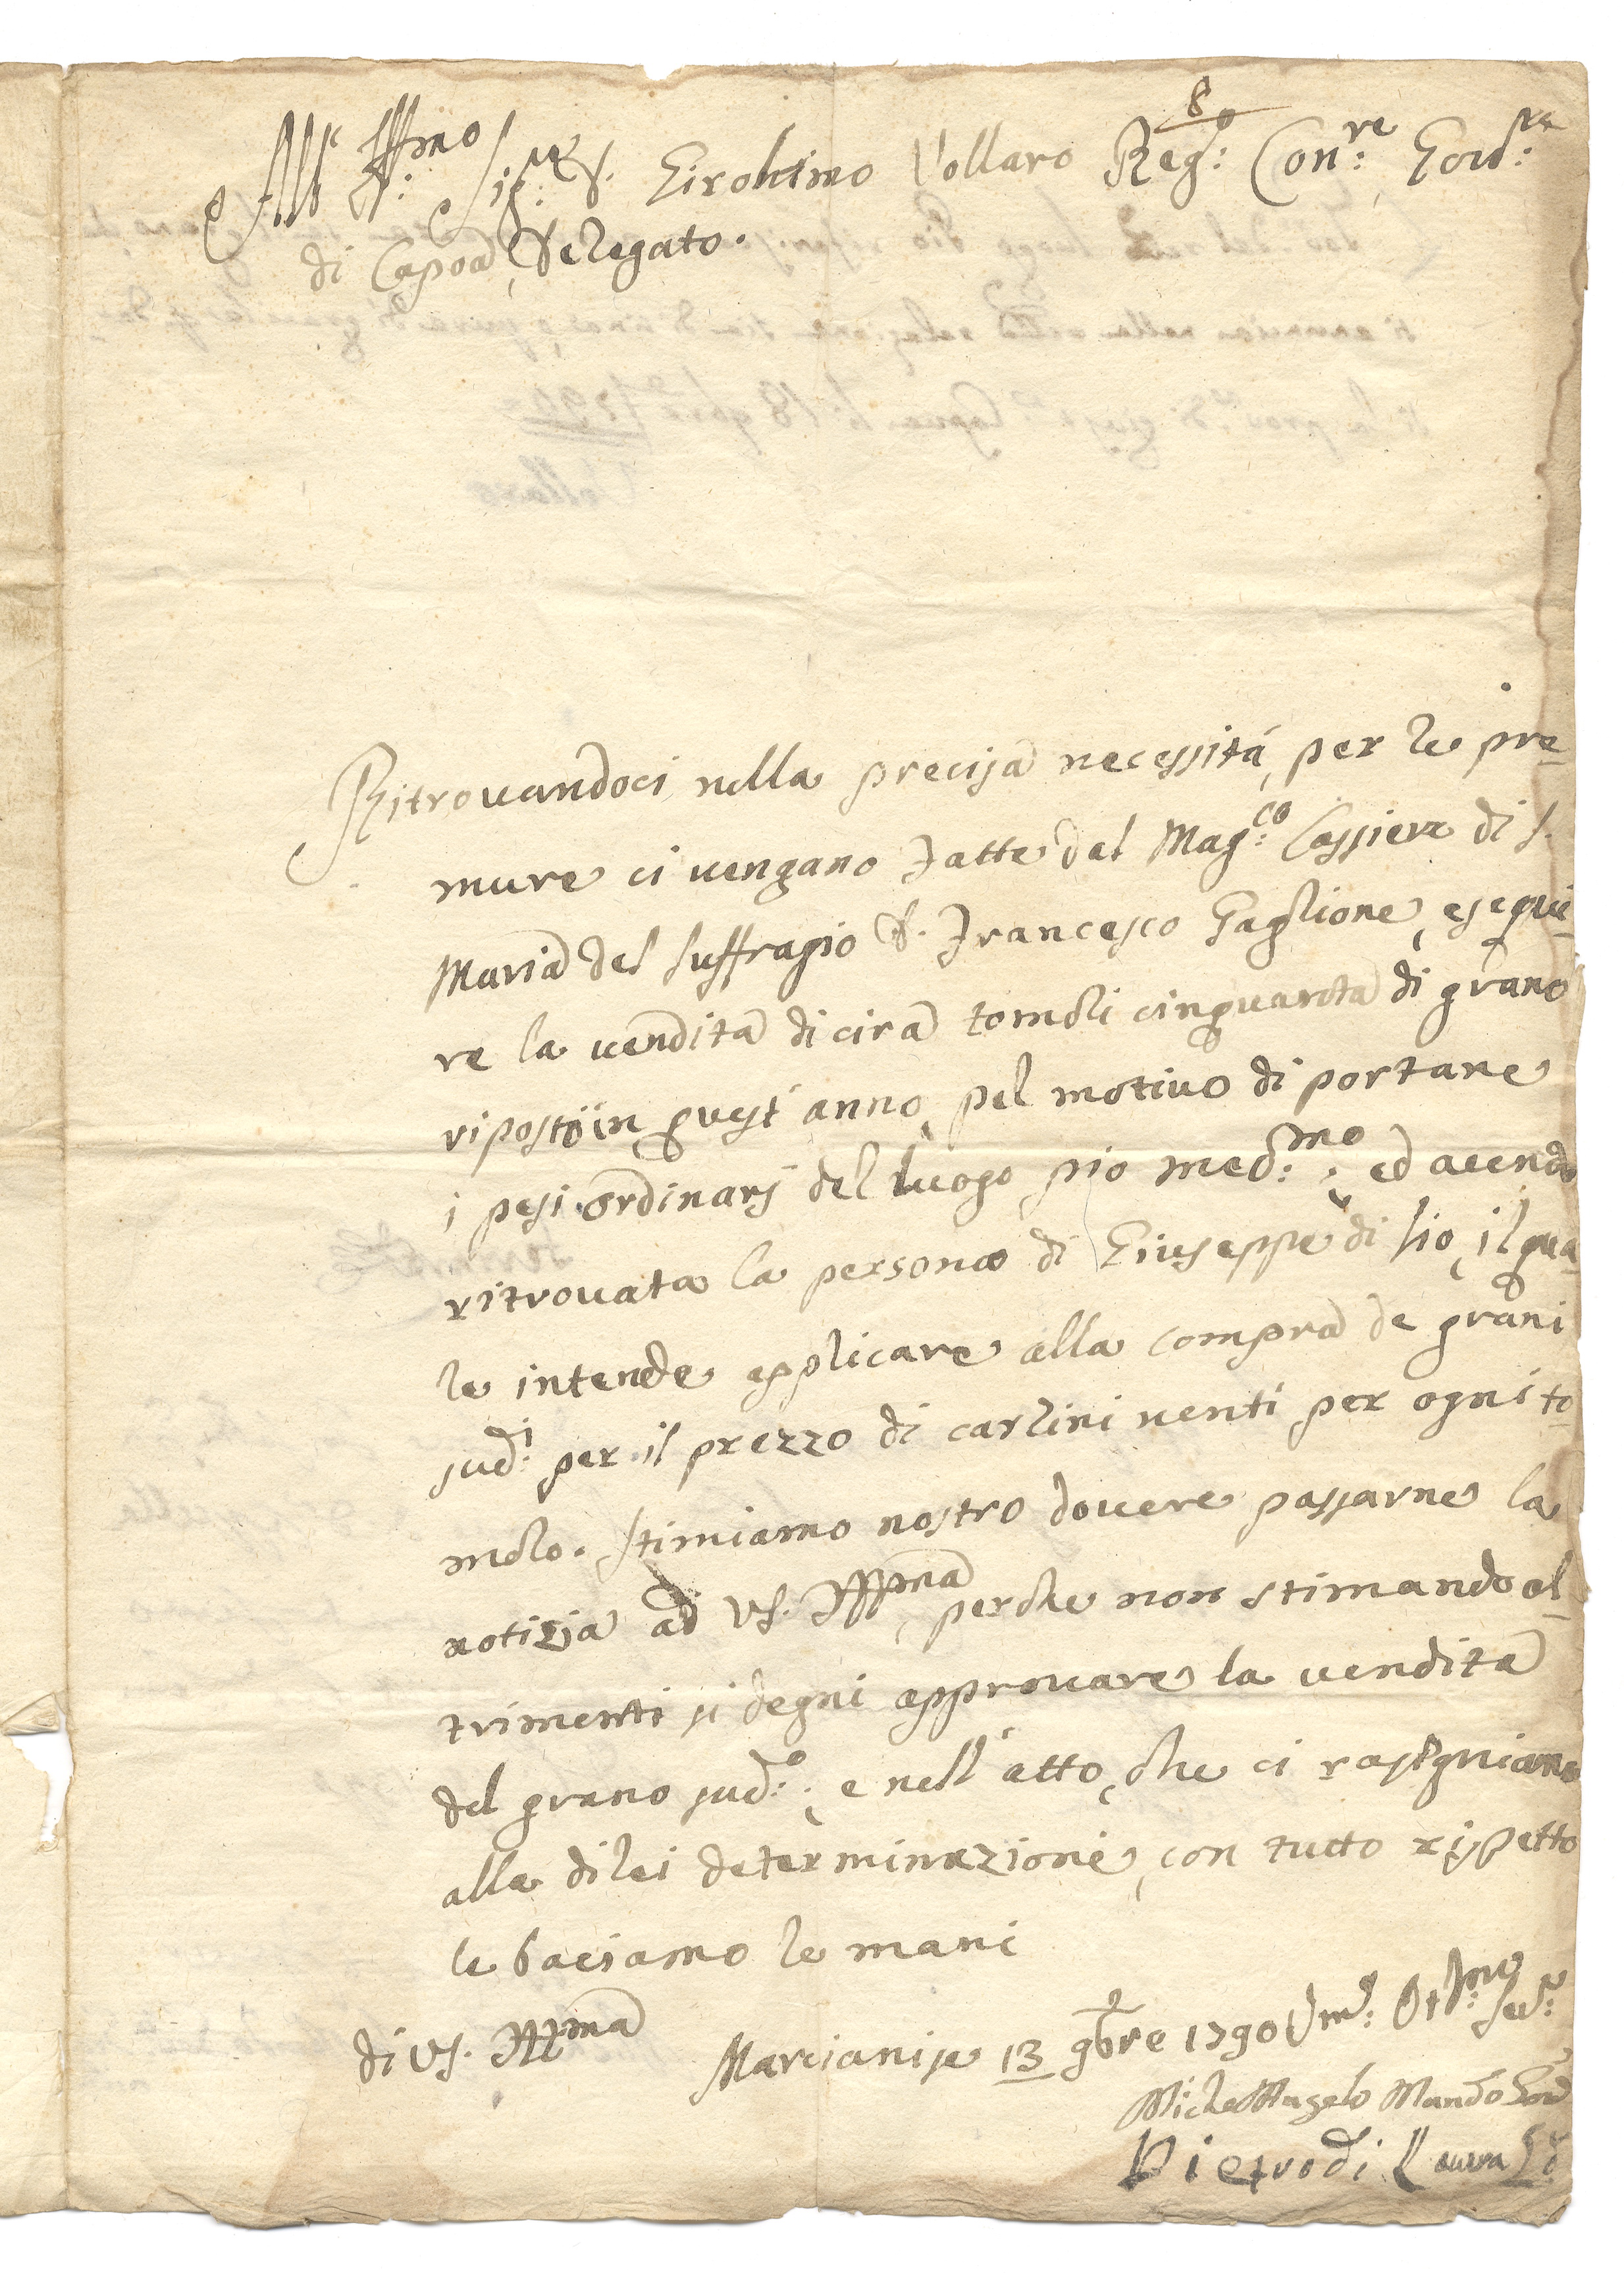 8
All' Ill.mo Sig.re D. Girolimo Vollaro Reg.o Con.re Gov.re
di Capoa, Delegato.
Ritrovandoci nella precisa necessità, per le pre-
mure ci vengano fatte dal Mag.co Cassiere di S.
Maria del Suffragio D. Francesco Gaglione, esegui-
re la vendita di circa tomoli cinquanta di grano
riposto in quest'anno, pel motivo di portane
i pesi ordinarj del luogo pio med.mo; ed avendo
ritrovata la persona di Giuseppe di Lio, il qua-
le intende applicare alla compra de grani
sud.i per il prezzo di carlini venti per ogni to-
molo. Stimiamo nostro dovere passarne la
notizia ad VS. Ill.ma, perche non stimando al-
trimenti si degni approvare la vendita
del grano sud.o; e nell'atto, che ci rassegniamo
alla di lei determinazione, con tutto rispetto
le baciamo le mani
di VS. Ill.ma Marcianise 13 9bre 1790 Um.i Obl.mi Ser.i
Michel'Angelo Mando Gov.
Pietro di Laura